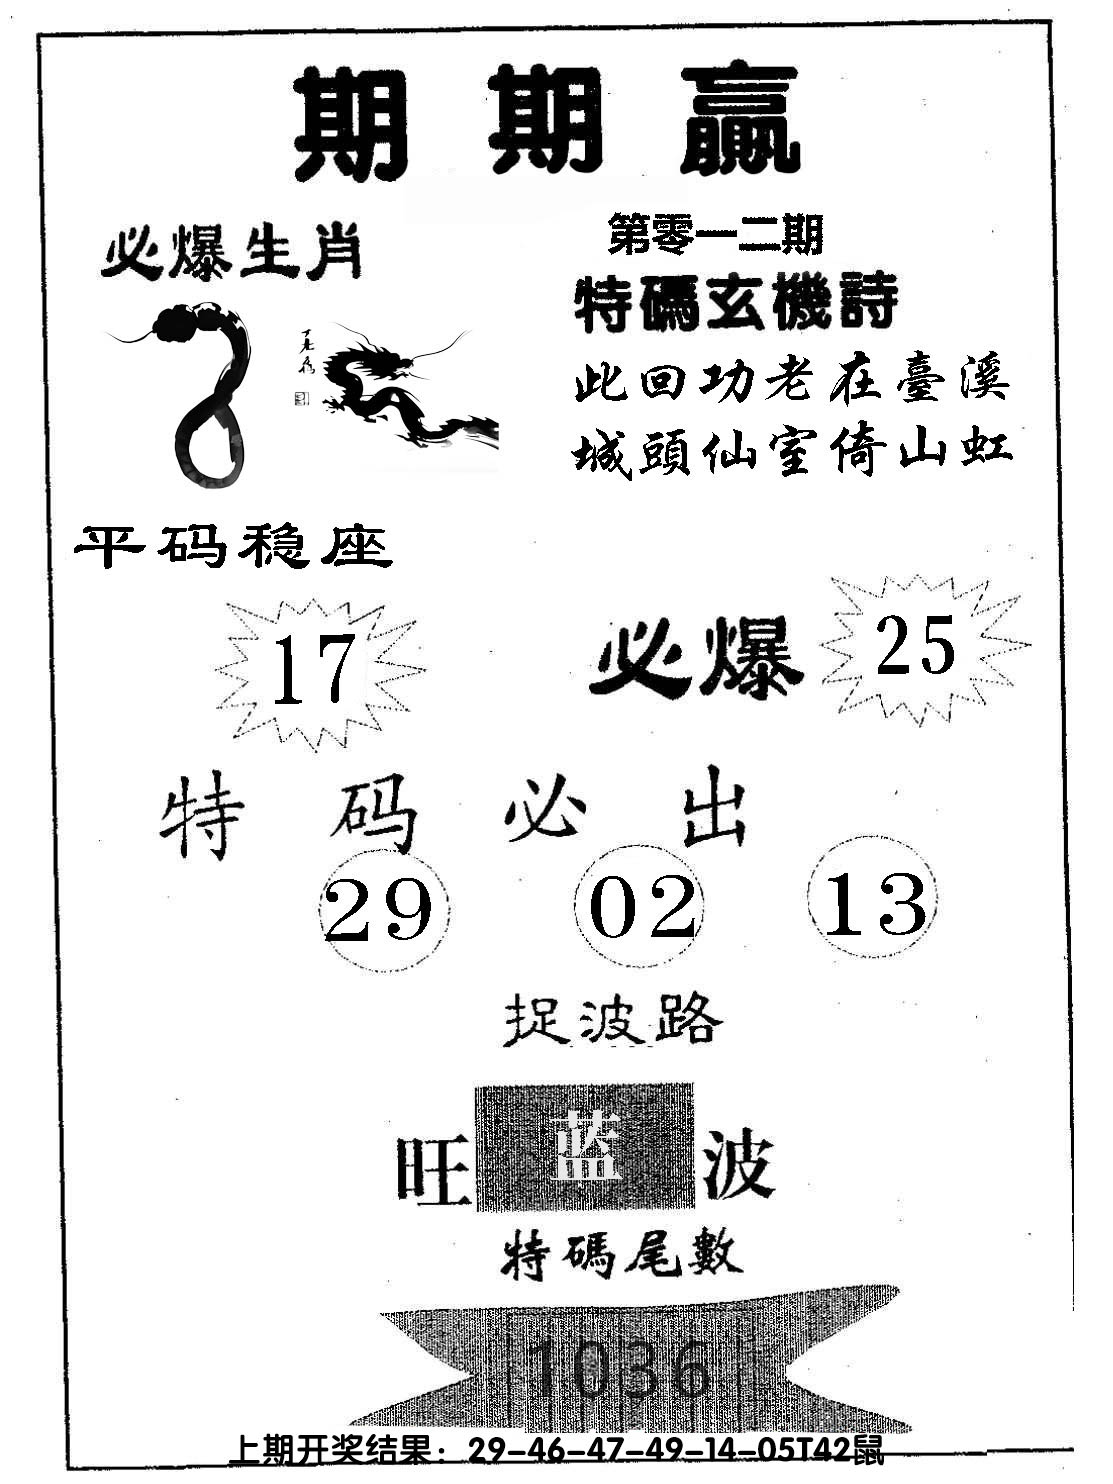 期期赢
必爆生肖
第零一二期
特碼玄機詩
此回功老在臺溪
城頭仙室倚山虹
平码稳座
17
必爆
25
特码必出
29
02
13
捉波路
旺蓝波
特碼尾數
1036
上期开奖结果：29-46-47-49-14-05T42鼠